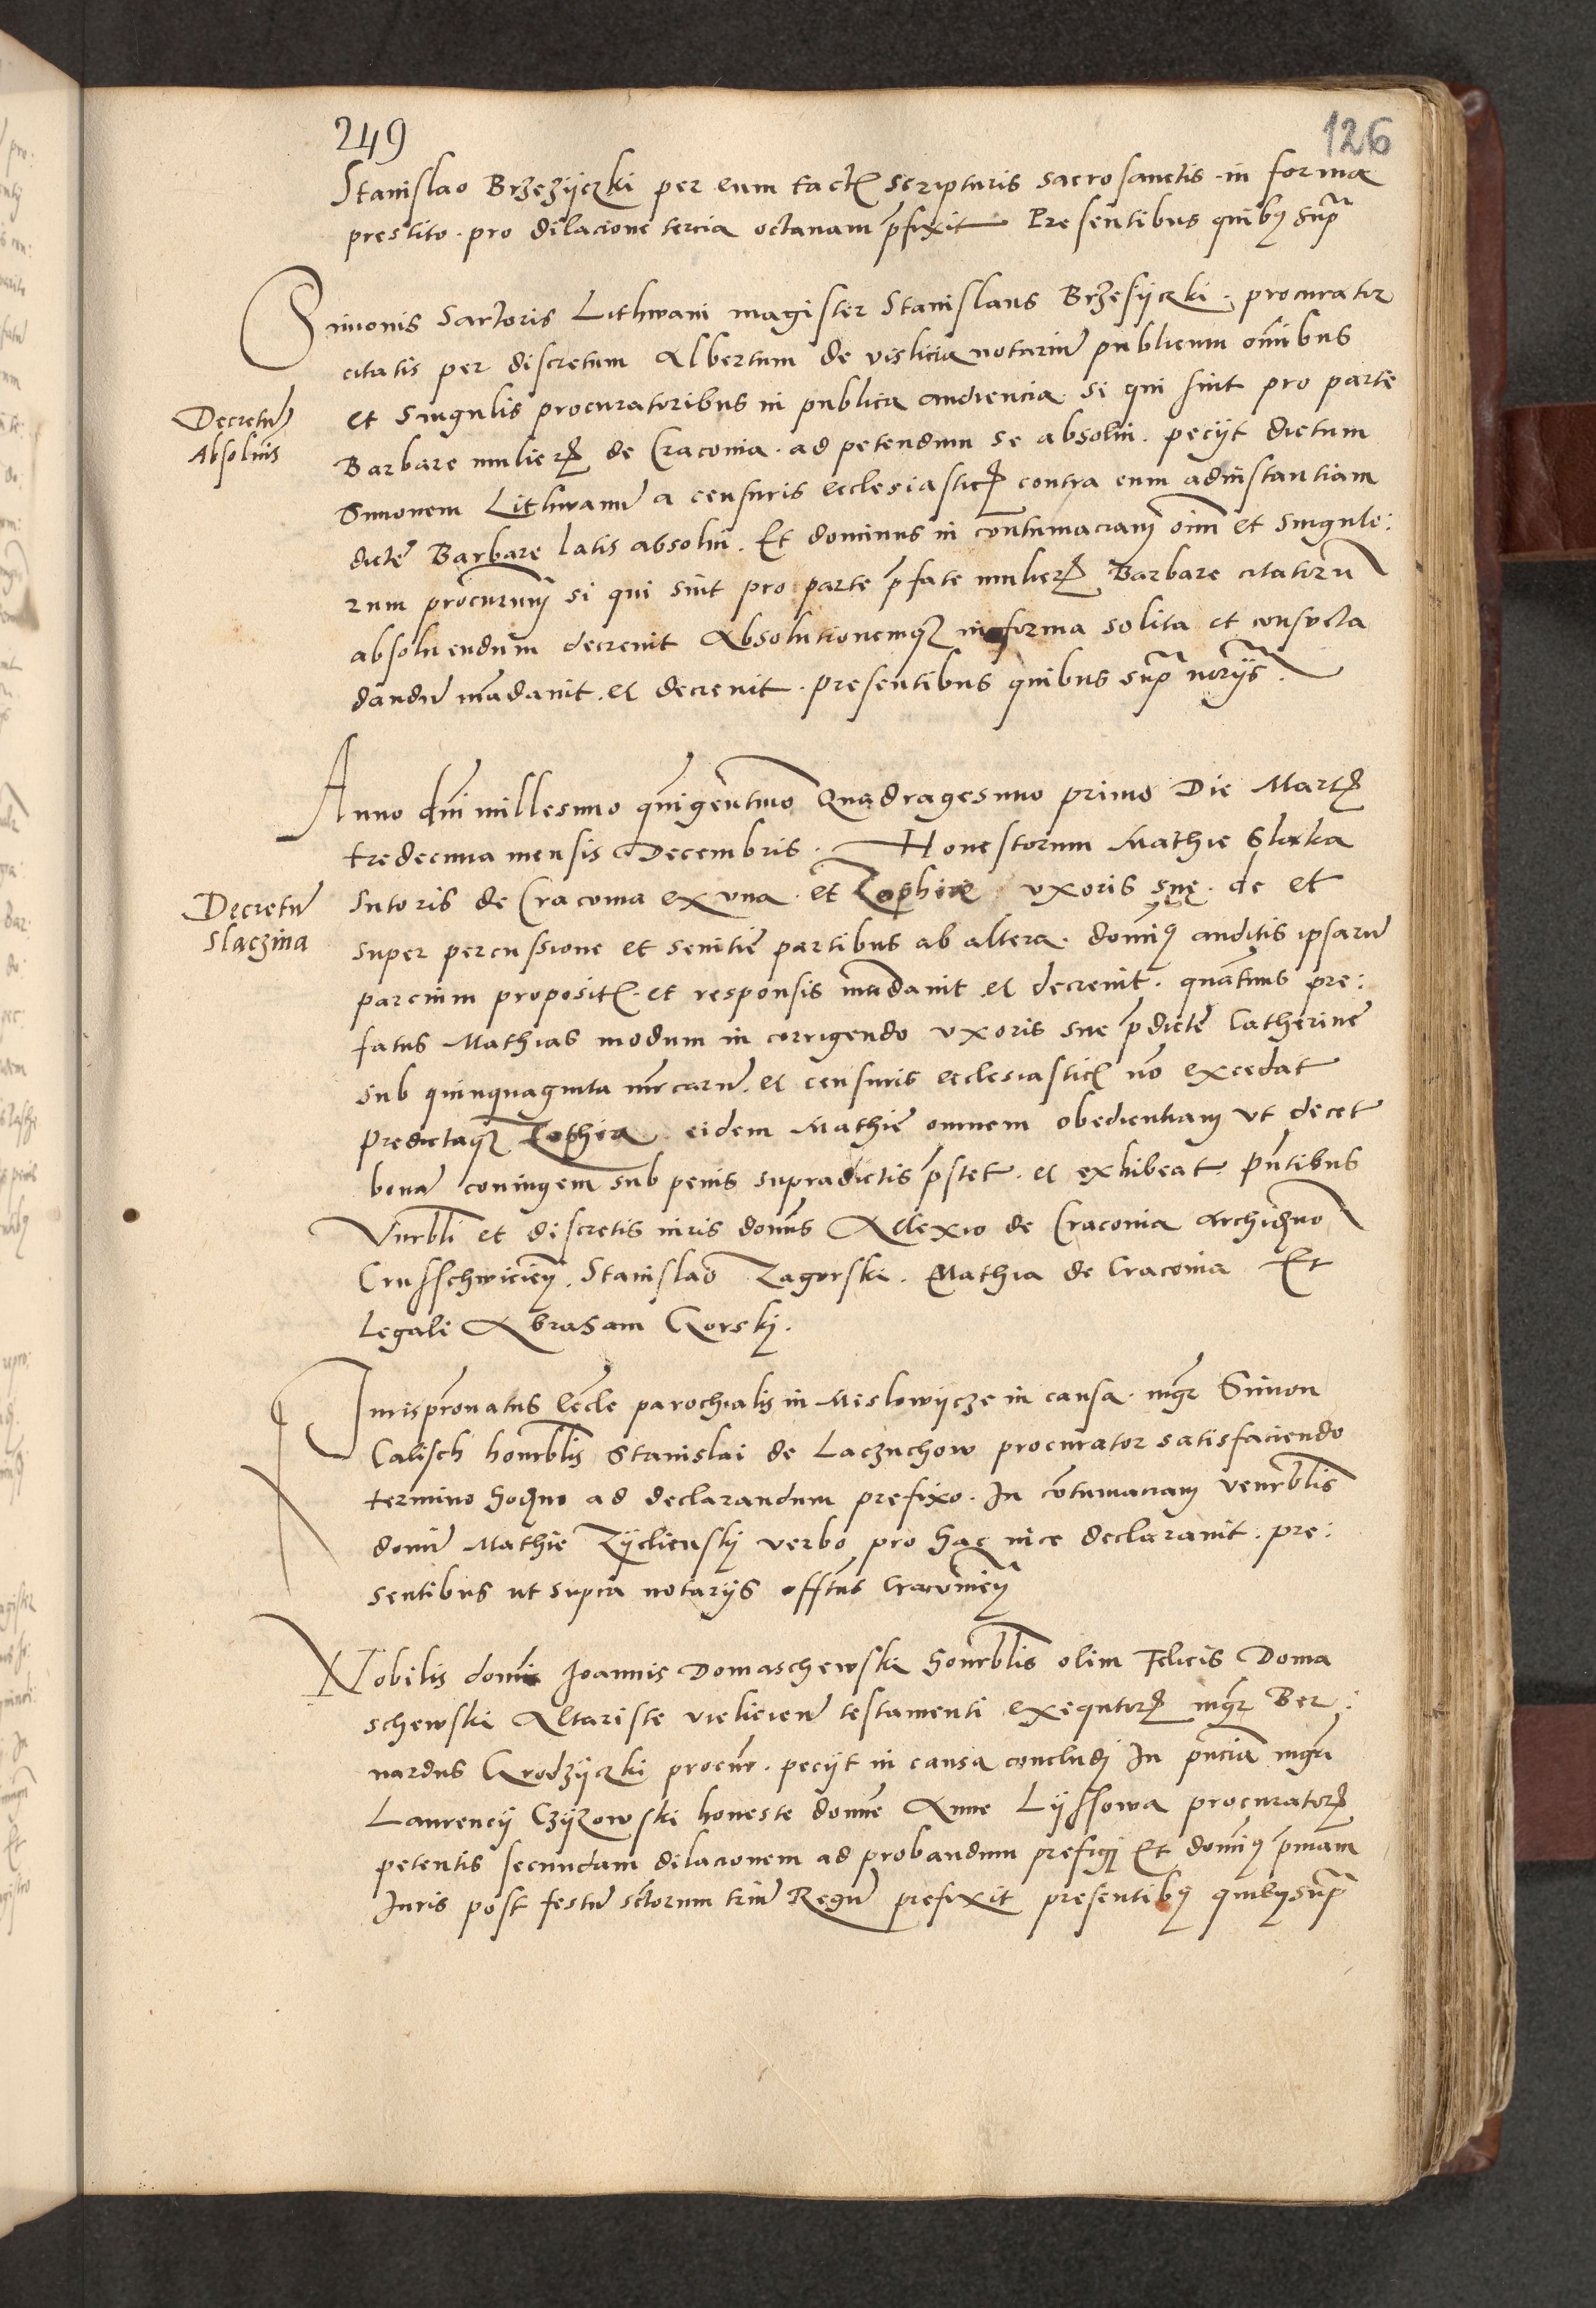 249
126
Stanislao Brzezÿczki per eum tactꝭ scripturis sacrosanctis in forma
prestito. pro dilacione tercia octauam p̄fixit Presentibus quibꝰ supͣ
Simonis Sartoris Lithwani magister Stanislaus Brzesÿczki. procurator
citatis per discretum Albertum de vislicia notariū publicum om̄ibus
et singulis procuratoribus in publica audiencia si qui sint pro parte
Decretū
Absolūis
Barbare mulierꝭ de Craconia. ad petendum se absolui. peciÿt dictum
Simonem Lithwanū a censuris ecclesiasticꝭ contra eum adinstantiam
dictę Barbare latis absolui. Et dominus in contumaciam oīm et singulo:
rum procurum̄ si qui sint pro parte p̄fate mulierꝭ Barbare citatorū
absoluendum decreuit Absolutionemqꝫ in forma solita et consueta
dandū mādauit et decreuit. presentibus quibus supͣ norÿs.
Anno dn̄i millesimo qūigentmo Quadragesimo primo Die Martꝭ
tredecima mensis Decembris. Honestorum Mathie Slaka
Decretū
Slaczina
sutoris de Craconia ex vna. et Zophiæ vxoris suę. de et
super percussione et seuitie partibus ab altera. dom̄ꝰ auditis ipsarū
parcium propositꝭ et responsis mādauit et decreuit. quatenus pre:
fatus Mathias modum in corrigendo vxoris sue p̄dictę Catherine
sub quinquaginta mrcarū et censuris ecclesiasticꝭ nō excedat
predictaqꝫ Zophia eidem Mathie omnem obedientiam vt decet
bonā coniugem sub penis supradictis p̄stet. et exhibeat pn̄tibus
Vnrbli et discretis uiris domīs Alexio de Craconia Archidno
Crusschwicień. Stanislao Zagorski. Mathia de Craconia Et
Legale Abraham Gorskj.
Jurisprōnatus eccle parochialis in Mislowÿcze in causa. mgr Simon
Calisch honrblis Stanislai de Laczuchow procurator satisfaciendo
termino hodno ad declarandum prefixo. In cōtumaciam venrblis
domī Mathie Zÿclienskj verbo pro hac uice declarauit. pre:
sentibus ut supra notarÿs offtus Cracouień
Nobilis domī Joannis Domaschewski honrblis olim Felicis Doma
schewski Altariste vieliciensis testamenti exequtorꝭ mgr Ber:
nardus Grodzÿczki procur. peciÿt in causa concludj In pn̄cia mgrī
Laurencÿ Czÿzowski honeste domīe Anne Lÿssowa procuratorꝭ
petentis secundam dilacionem ad probandum prefigj Et dom̄ꝰ pmam
Juris post festū sctorum triū Regū prefixit presentibꝰ quibꝰ supͣ